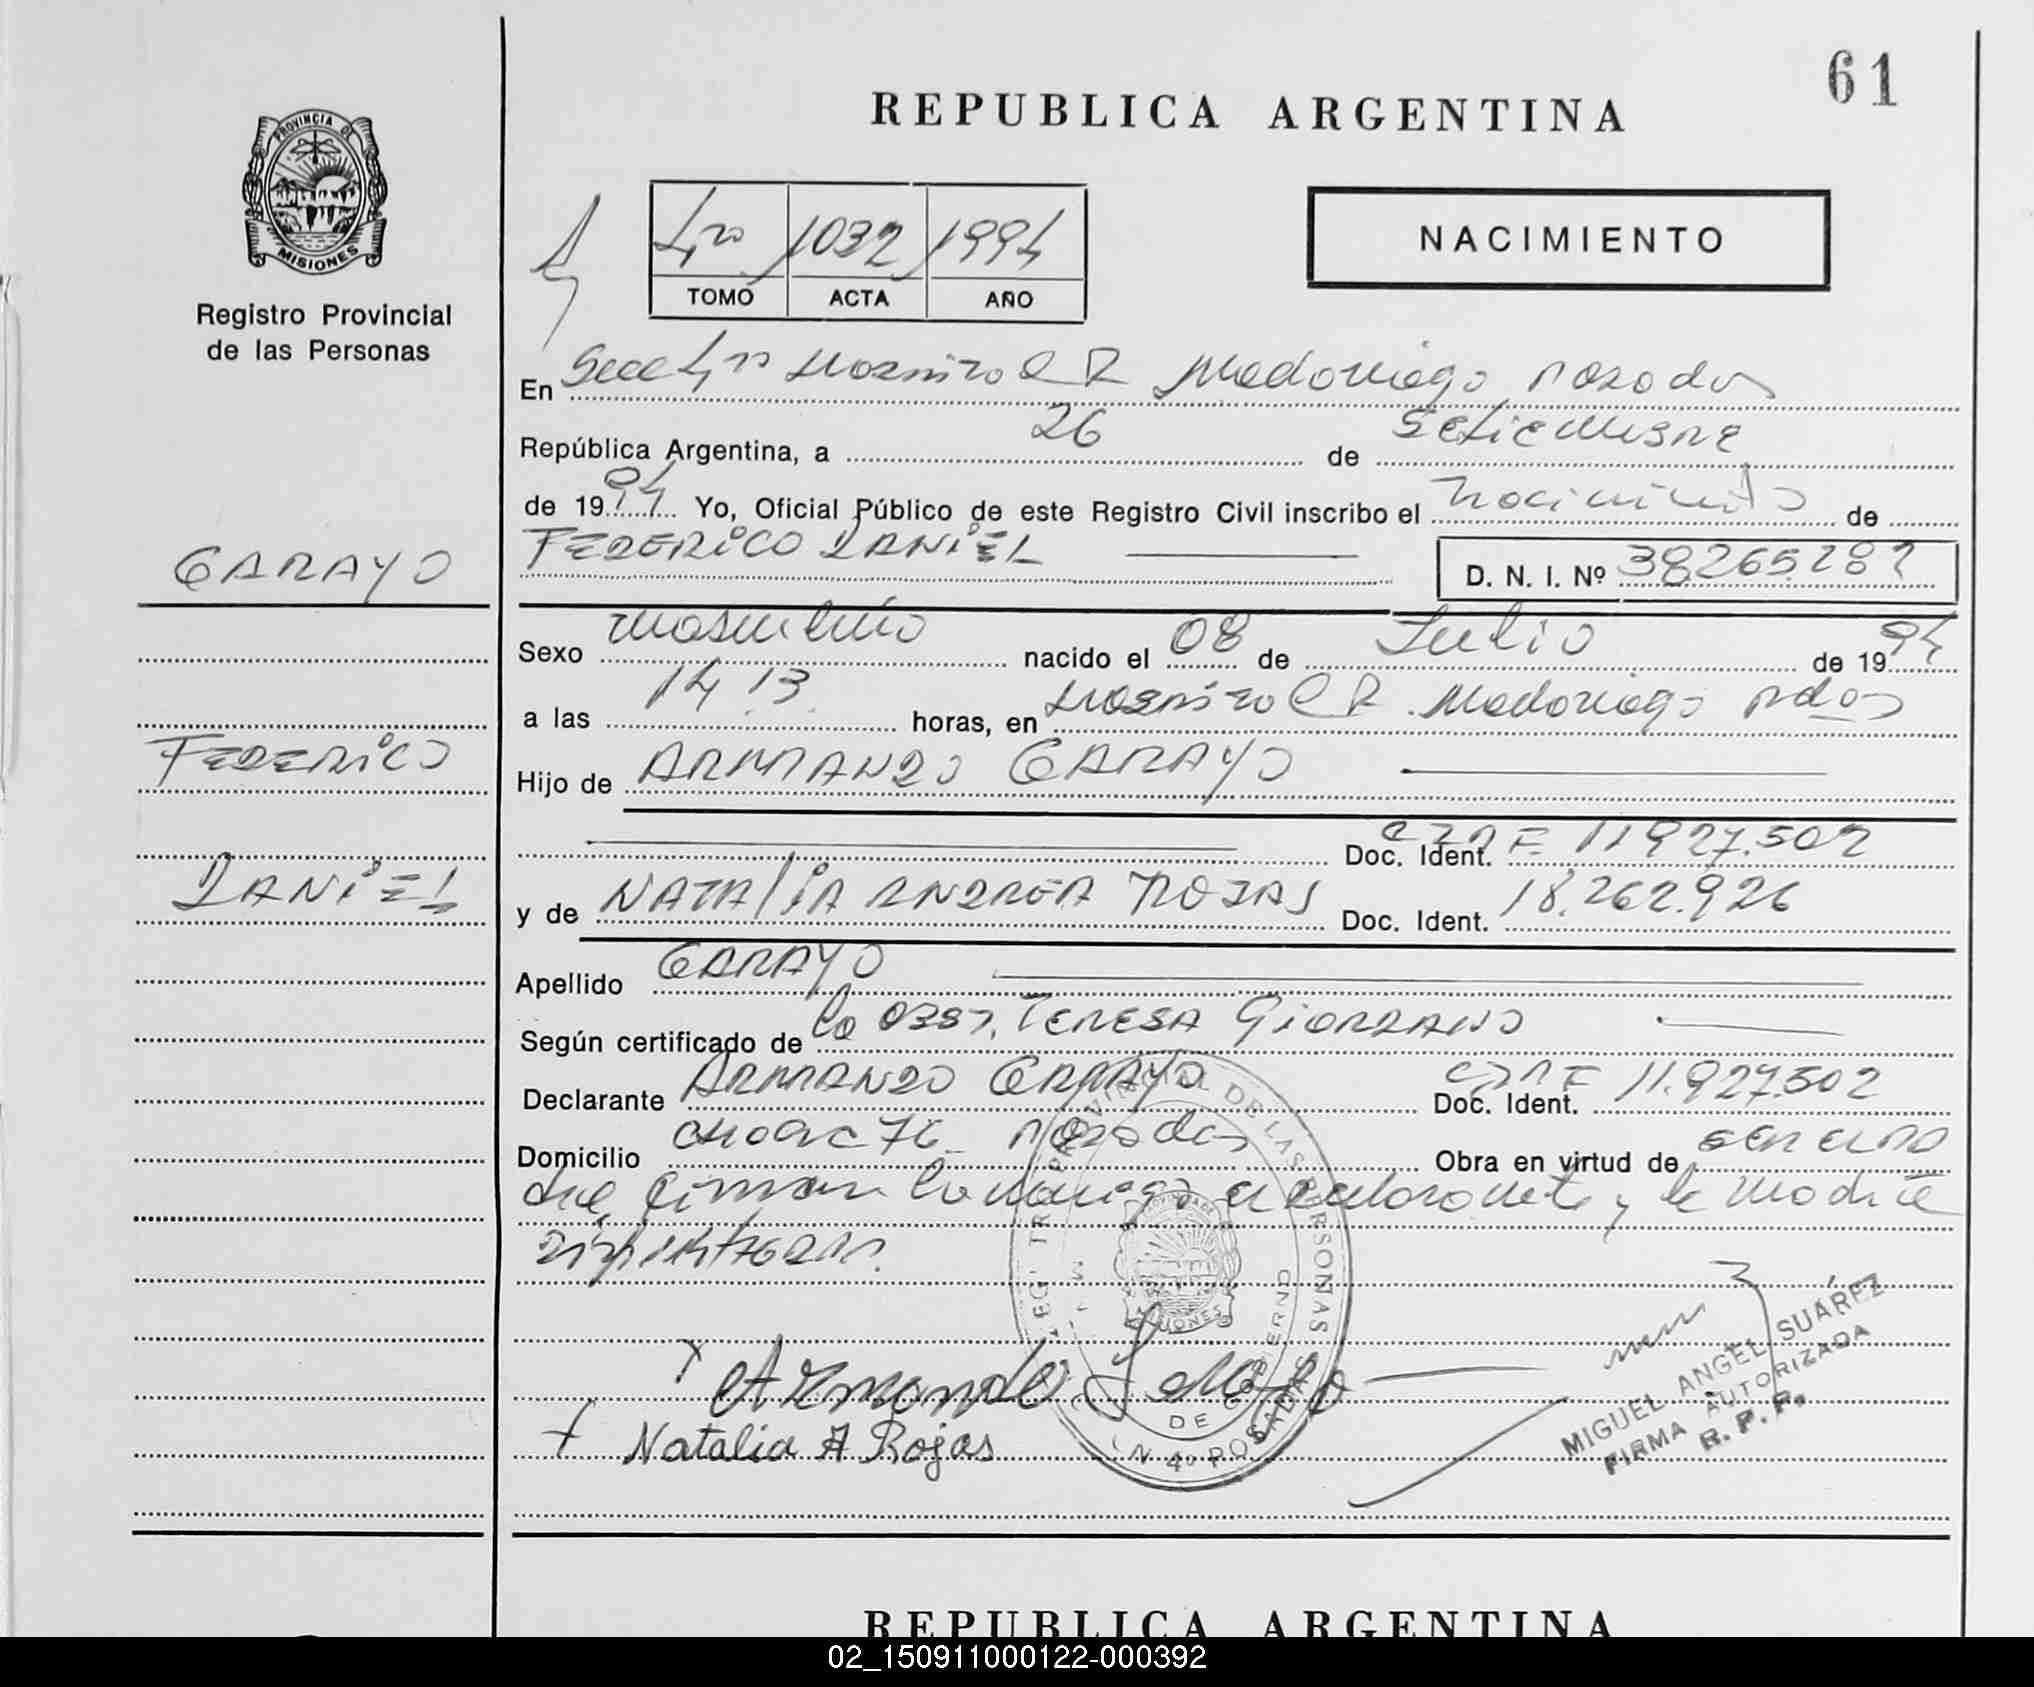 61
REPUBLICA ARGENTINA
PROVINCIA DE
MISIONES
Registro Provincial
de las Personas
4to 1032 1994
TOMO ACTA AÑO
NACIMIENTO
En Secc 4ta Hospital R Madariaga Posadas
República Argentina, a 26 de Setiembre
de 1994 Yo, Oficial Público de este Registro Civil inscribo el Nacimiento de
GARAYO
FEDERICO DANIEL
D. N. I. Nº 38265287
Sexo Masculino nacido el 08 de Julio de 1994
a las 14 13 horas, en Hospital R. Madariaga Pdas
FEDERICO
Hijo de ARMANDO GARAYO
Doc. Ident. F. 11927.502
DANIEL
y de NATALIA ANDREA ROJAS Doc. Ident. 18.262.926
Apellido GARAYO
Según certificado de la Obst. TERESA GIORDANO
Declarante ARMANDO GARAYO Doc. Ident. F 11.927.502
Domicilio 76 Posadas Obra en virtud de
y la madre
REG. PROVINCIAL DE LAS PERSONAS
Armando Garayo
Natalia A Rojas
MIGUEL ANGEL SUÁREZ
FIRMA AUTORIZADA
R. P. P.
N 4º POSADAS
REPUBLICA ARGENTINA
02_150911000122-000392